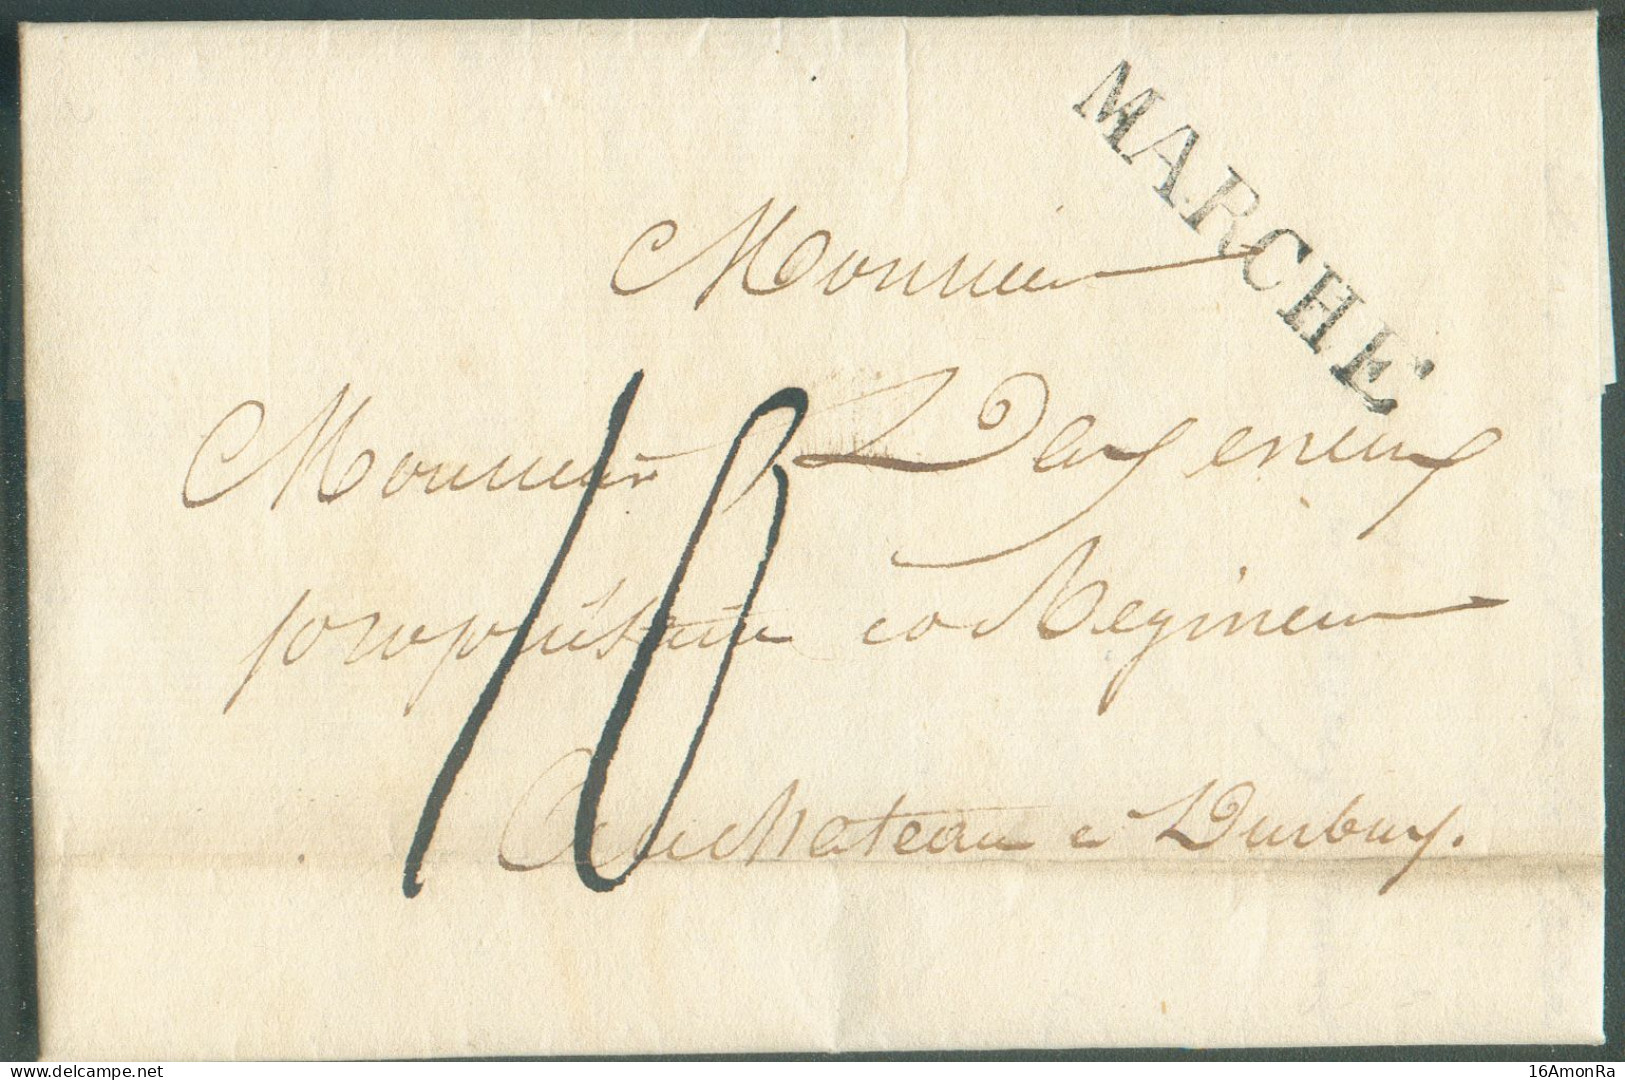 MARCHE
Monsieur
Monsieur Dayeneux
propriétaire et Regisseur
10
Au chateau a Durbuy.
delcampe.net
16AmonRa